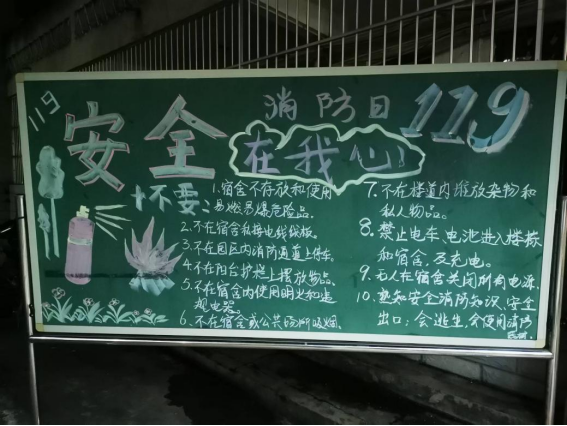 119
消防日
119
安全
在我心
十不要:
1.宿舍不存放和使用
易燃易爆危险品。
2.不在宿舍私接电线插板。
3.不在园区内消防通道上停车。
4.不在阳台护栏上摆放物品。
5.不在宿舍内使用明火和违
规电器。
6.不在宿舍或公共场所吸烟。
7.不在楼道内堆放杂物和
私人物品。
8.禁止电车、电池进入楼栋
和宿舍,及充电。
9.无人在宿舍关闭所有电源。
10.熟知安全消防知识、安全
出口;会逃生,会使用消防